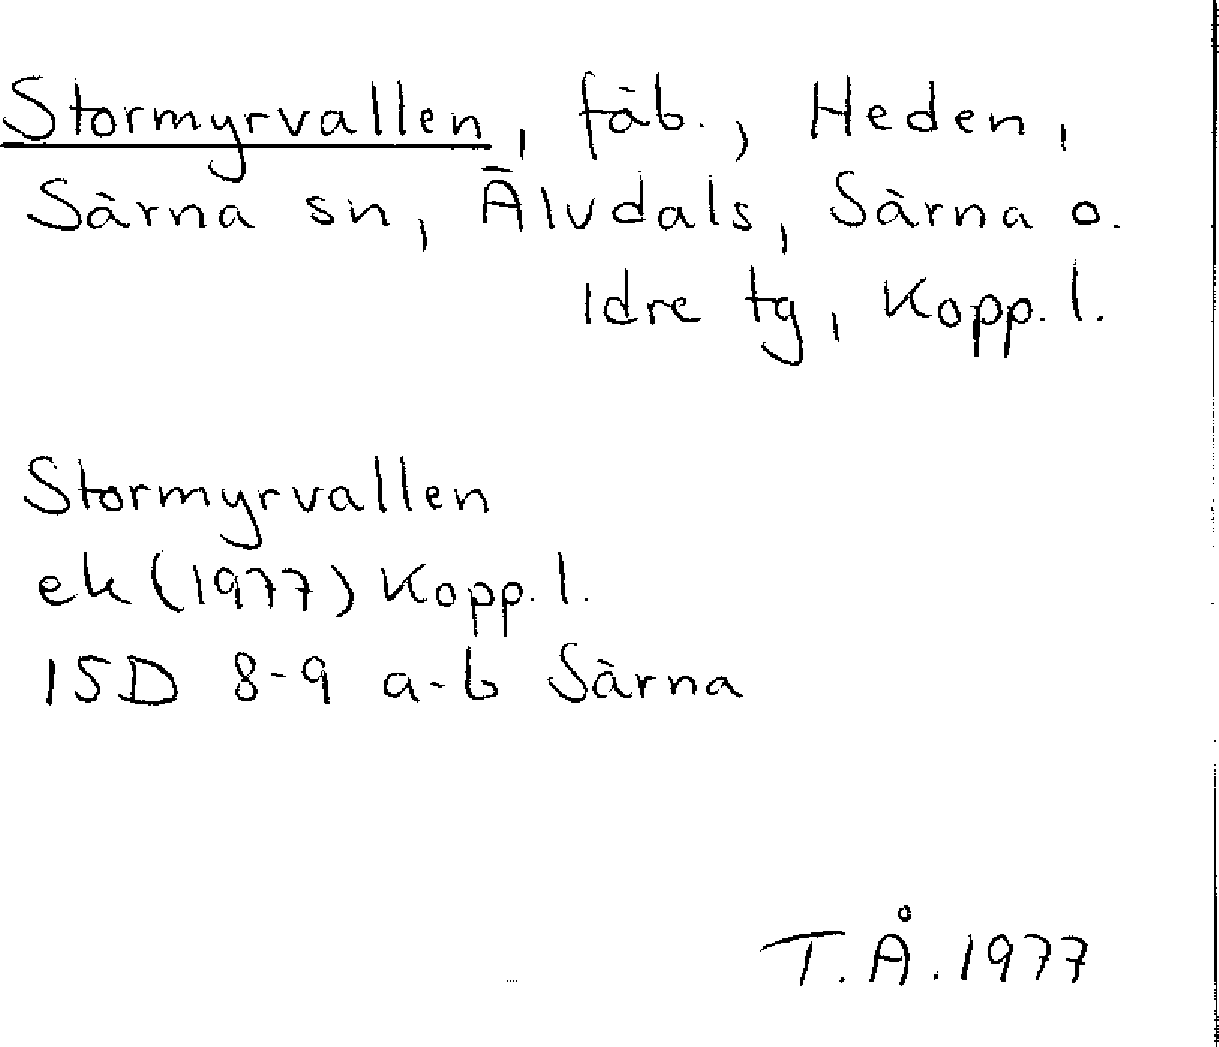 Stormyrvallen, fäb., Heden,
Särna sn, Älvdals, Särna o.
Idre tg, Kopp. l.
Stormyrvallen
ek (1977) Kopp. l.
15D 8-9 a-b Särna
T.Å. 1977